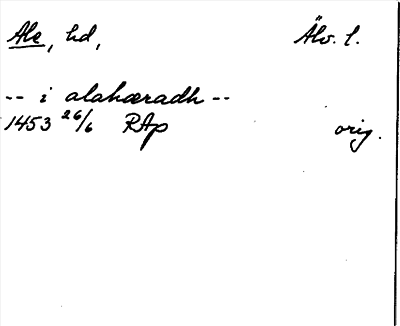 Ale, hd, Älv. l.
-- i alahæradh --
1453 26/6 RAp orig.